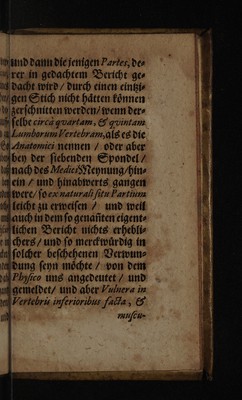 und dann die jenigen Partes, de-
rer in gedachtem Bericht ge-
dacht wird / durch einen eintzi-
gen Stich nicht hätten können
zerschnitten werden / wenn der-
selbe circà quartam, & quintam
Lumborum Vertebram, als es die
Anatomici nennen / oder aber
bey der siebenden Spondel /
nach des Medici Meynung / hin-
ein / und hinabwerts gangen
wer / so ex naturali situ Partium
leicht zu erweisen / und weil
auch in dem so genañten eigent-
lichen Bericht nichts erhebli-
chers / und so merckwürdig in
solcher beschehenen Verwun-
dung seyn möchte / von dem
Physico uns angedeutet / und
gemeldet / und aber Vulnera in
Vertebris inferioribus facta, &
muscu-